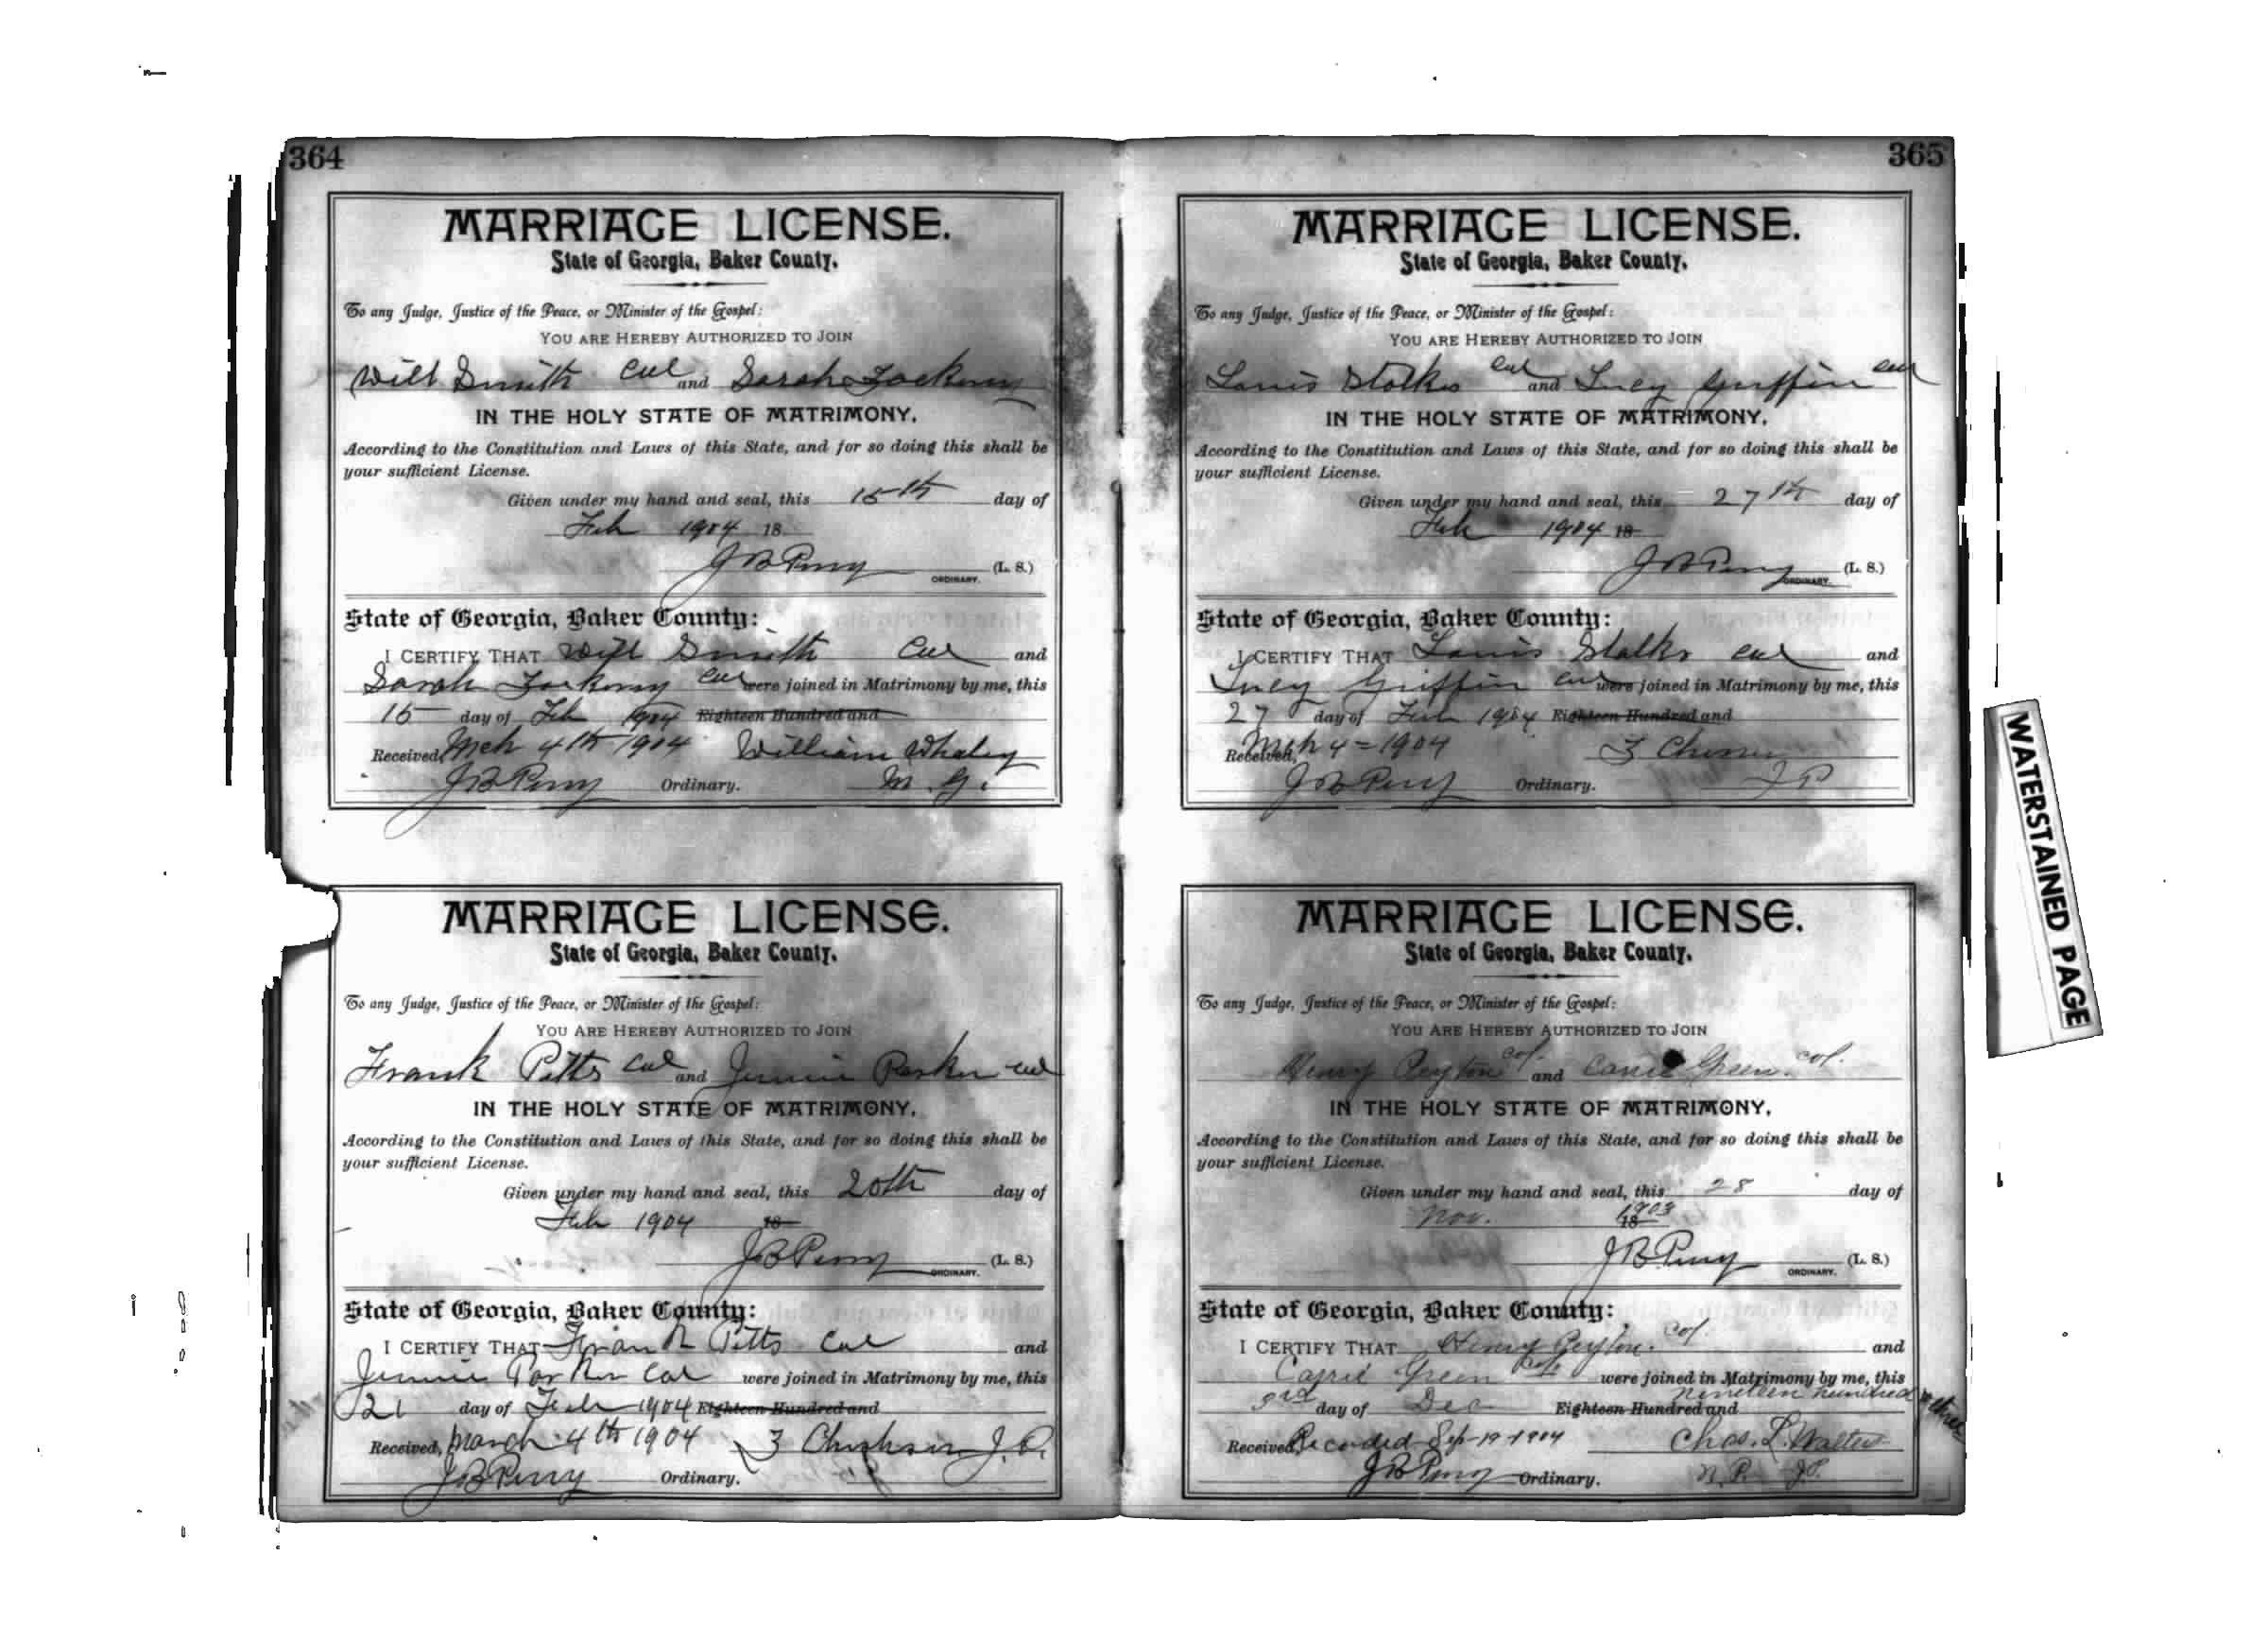 364
MARRIAGE LICENSE.
State of Georgia, Baker County.
To any Judge, Justice of the Peace, or Minister of the Gospel:
YOU ARE HEREBY AUTHORIZED TO JOIN
Will Smith Col and Sarah
IN THE HOLY STATE OF MATRIMONY,
According to the Constitution and Laws of this State, and for so doing this shall be
your sufficient License.
Given under my hand and seal, this 15th day of
Feb 1904 18
J B Perry (L. S.)
ORDINARY.
State of Georgia, Baker County:
I CERTIFY THAT Will Smith Col and
Sarah Col were joined in Matrimony by me, this
15 day of Feb 1904 Eighteen Hundred and
Received, Mch 4th 1904 William Whaley
J B Perry Ordinary. M. G.
MARRIAGE LICENSE.
State of Georgia, Baker County.
To any Judge, Justice of the Peace, or Minister of the Gospel:
YOU ARE HEREBY AUTHORIZED TO JOIN
Frank Pitts Col and Jennie Parker Col
IN THE HOLY STATE OF MATRIMONY,
According to the Constitution and Laws of this State, and for so doing this shall be
your sufficient License.
Given under my hand and seal, this 20th day of
Feb 1904 18
J B Perry (L. S.)
ORDINARY.
State of Georgia, Baker County:
I CERTIFY THAT Frank Pitts Col and
Jennie Parker Col were joined in Matrimony by me, this
21 day of Feb 1904 Eighteen Hundred and
Received, March 4th 1904 J. P.
J B Perry Ordinary.
365
MARRIAGE LICENSE.
State of Georgia, Baker County.
To any Judge, Justice of the Peace, or Minister of the Gospel:
YOU ARE HEREBY AUTHORIZED TO JOIN
Louis Stalks Col and Lucy Griffin Col
IN THE HOLY STATE OF MATRIMONY,
According to the Constitution and Laws of this State, and for so doing this shall be
your sufficient License.
Given under my hand and seal, this 27th day of
Feb 1904 18
J B Perry (L. S.)
ORDINARY.
State of Georgia, Baker County:
I CERTIFY THAT Louis Stalks Col and
Lucy Griffin Col were joined in Matrimony by me, this
27 day of Feb 1904 Eighteen Hundred and
Received, Mch 4 = 1904
J B Perry Ordinary. J P
MARRIAGE LICENSE.
State of Georgia, Baker County.
To any Judge, Justice of the Peace, or Minister of the Gospel:
YOU ARE HEREBY AUTHORIZED TO JOIN
Henry Peyton col. and Carrie Green. col.
IN THE HOLY STATE OF MATRIMONY,
According to the Constitution and Laws of this State, and for so doing this shall be
your sufficient License.
Given under my hand and seal, this 28 day of
Nov. 1903 18
J B Perry (L. S.)
ORDINARY.
State of Georgia, Baker County:
I CERTIFY THAT Henry Peyton. Col. and
Carrie Green Col. were joined in Matrimony by me, this
3rd day of Dec Eighteen Hundred and nineteen hundred & three
Received, Recorded Sep-19-1904 Chas. L. Walters
J B Perry Ordinary. N. P. J. P.
WATERSTAINED PAGE